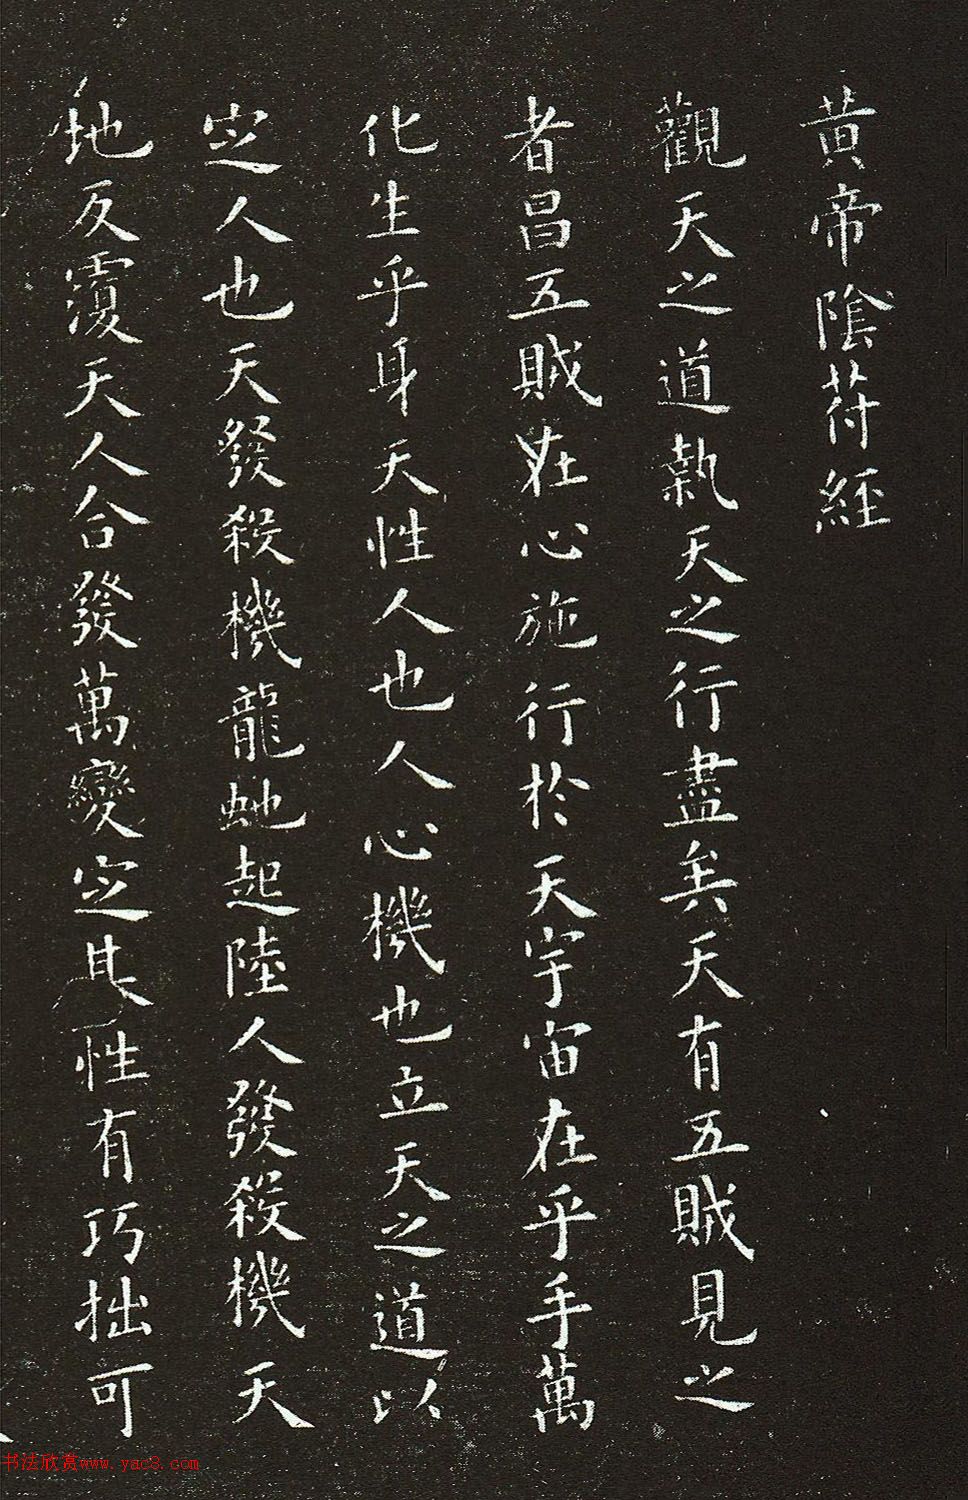 黄帝陰苻經
觀天之道執天之行盡矣天有五賊見之
者昌五賊在心施行於天宇宙在乎手萬
化生乎身天性人也人心機也立天之道以
定人也天發殺機龍虵起陸人發殺機天
地反覆天人合發萬變定其性有巧拙可
书法欣赏www.yac8.com